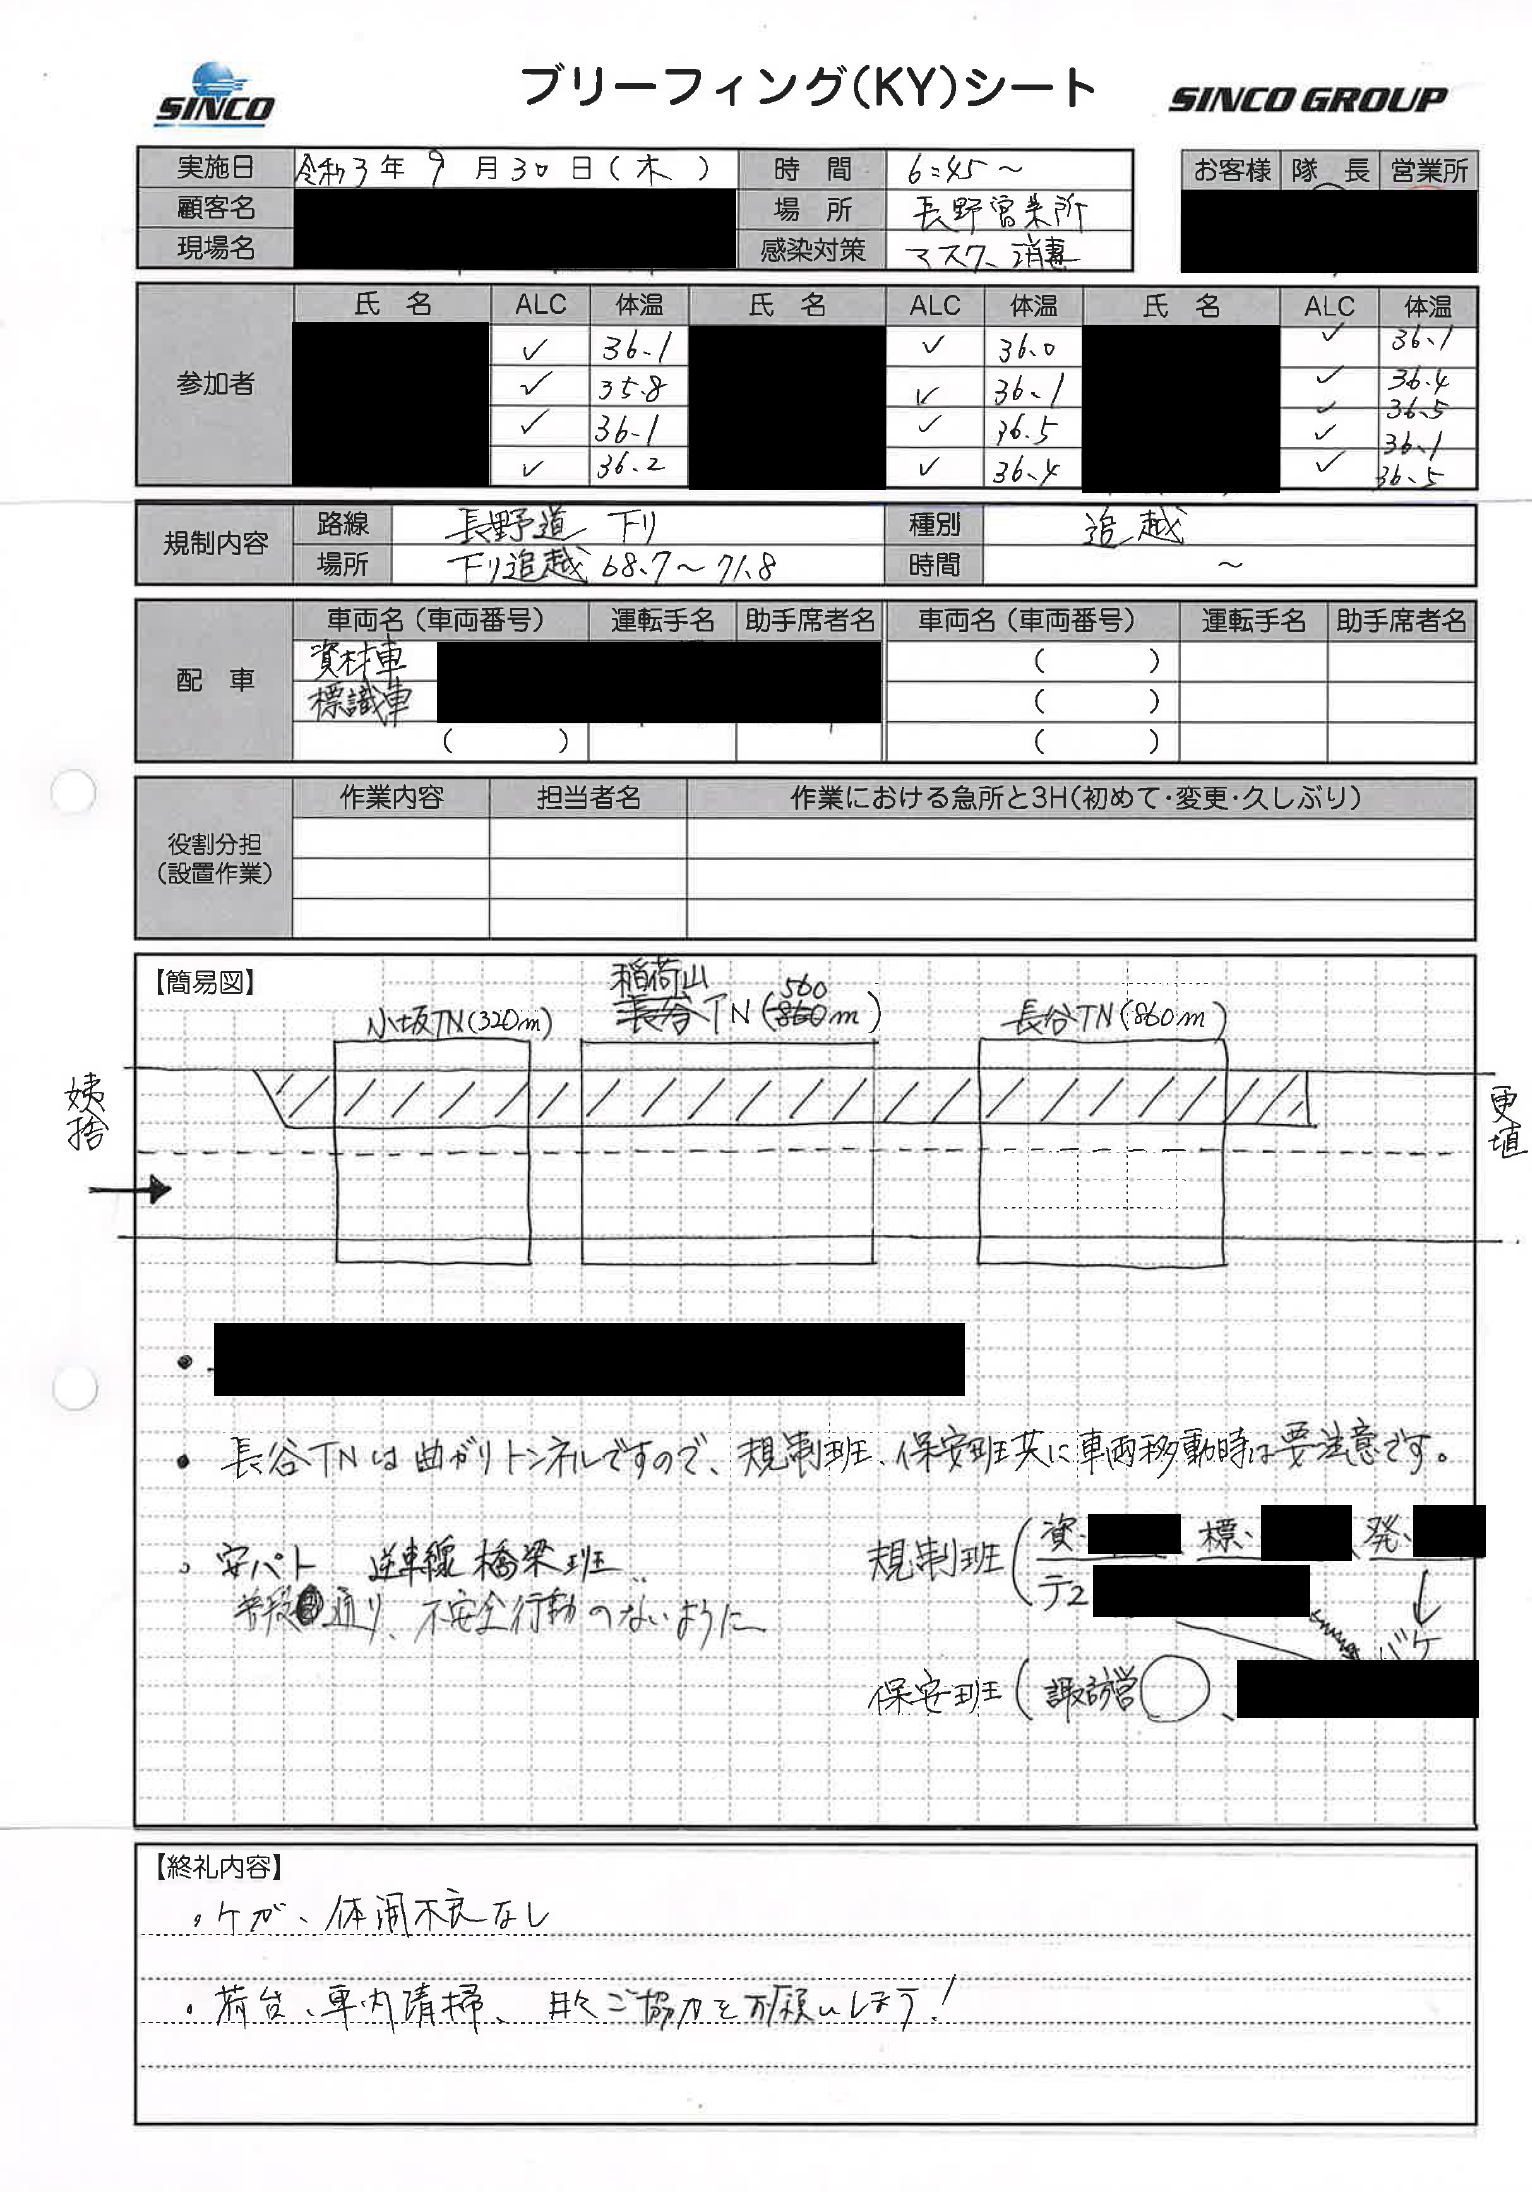 SINCO
ブリーフィング(KY)シート
SINCO GROUP
実施日 令和3年 9月30日(木) 時間 6:45〜
お客様 隊長 営業所
顧客名 場所 長野営業所
現場名 感染対策 マスク、消毒
参加者
氏名 ALC 体温 氏名 ALC 体温 氏名 ALC 体温
✓ 36.1 ✓ 36.0 ✓ 36.1
✓ 35.8 ✓ 36.1 ✓ 36.4
✓ 36.5
✓ 36.1 ✓ 36.5 ✓ 36.1
✓ 36.2 ✓ 36.4 ✓ 36.5
規制内容
路線 長野道 下り 種別 追越
場所 下り追越 68.7〜71.8 時間 〜
配車
車両名(車両番号) 運転手名 助手席者名 車両名(車両番号) 運転手名 助手席者名
資材車 ( )
標識車 ( )
( ) ( )
役割分担
(設置作業)
作業内容 担当者名 作業における急所と3H(初めて・変更・久しぶり)
【簡易図】
稲荷山 560
小坂TN(320m) 長谷TN(860m) 長谷TN(860m)
姨捨
更埴
・長谷TNは曲がりトンネルですので、規制班、保安班共に車両移動時は要注意です。
・安パト 逆車線橋梁班
普段通り、不安全行動のないように
規制班(資・ 標、 発、
テ2
バケ
保安班(諏訪営○、
【終礼内容】
・ケガ、体調不良なし
・荷台、車内清掃、日々ご協力をお願いします!